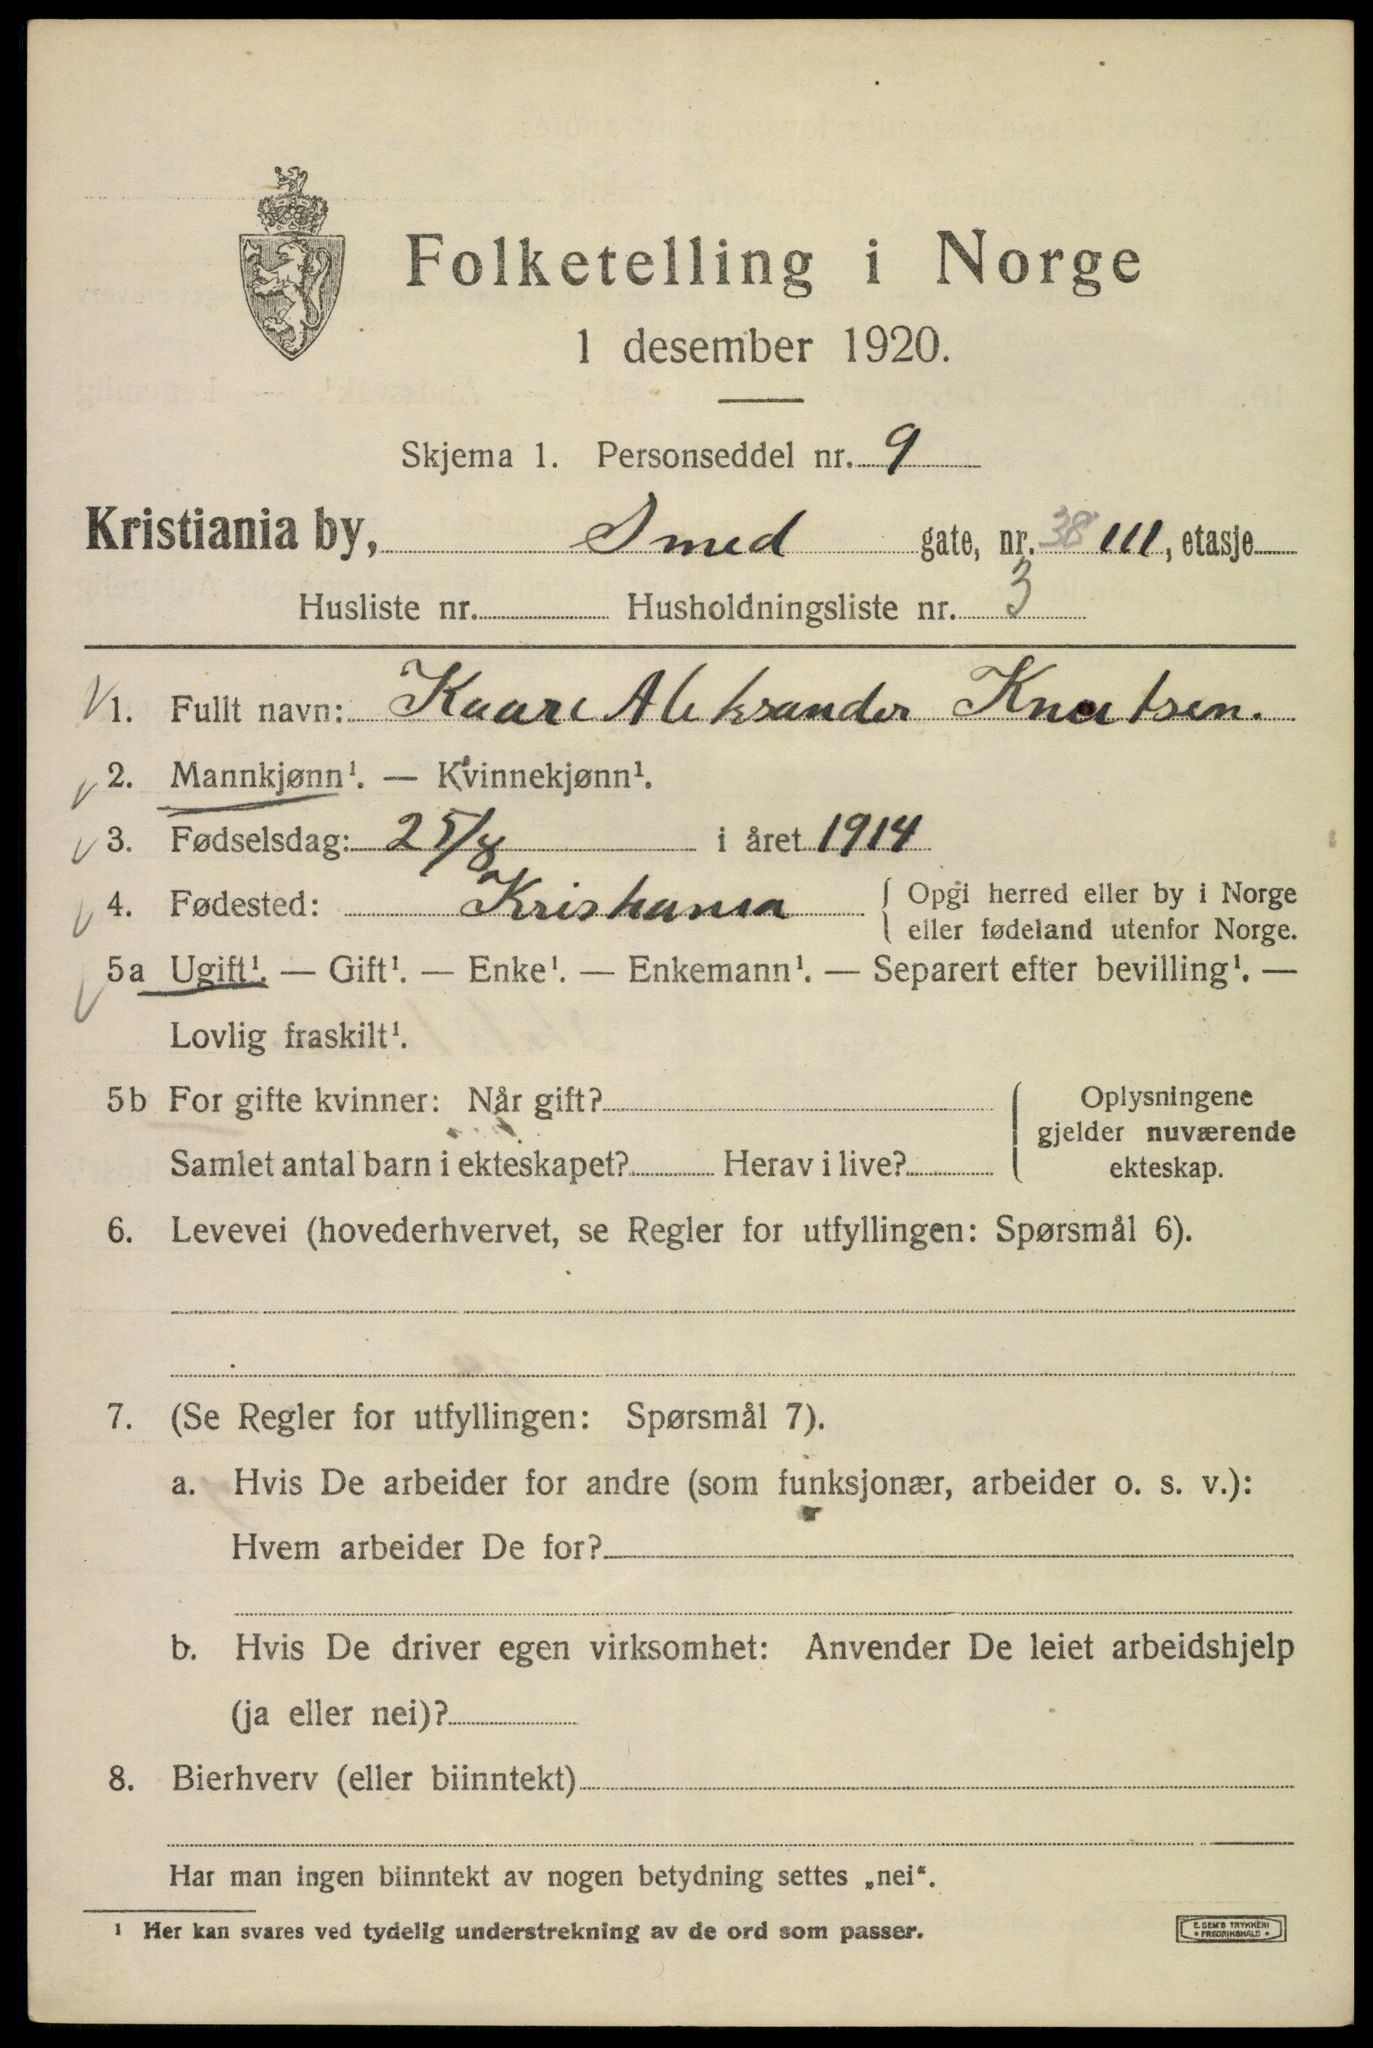 Folketelling i Norge
1 desember 1920.
Skjema 1. Personseddel nr. 9
Kristiania by, Smed gate, nr. 38 III, etasje
Husliste nr. Husholdningsliste nr. 3
1. Fullt navn: Kaare Aleksander Knutsen.
2. Mannkjønn¹. — Kvinnekjønn¹.
3. Fødselsdag: 25/8 i året 1914
4. Fødested: Kristiania { Opgi herred eller by i Norge
eller fødeland utenfor Norge.
5a Ugift¹. — Gift¹. — Enke¹. — Enkemann¹. — Separert efter bevilling¹. —
Lovlig fraskilt¹.
5b For gifte kvinner: Når gift?
Samlet antal barn i ekteskapet? Herav i live?
Oplysningene
gjelder nuværende
ekteskap.
6. Levevei (hovederhvervet, se Regler for utfyllingen: Spørsmål 6).
7. (Se Regler for utfyllingen: Spørsmål 7).
a. Hvis De arbeider for andre (som funksjonær, arbeider o. s. v.):
Hvem arbeider De for?
b. Hvis De driver egen virksomhet: Anvender De leiet arbeidshjelp
(ja eller nei)?
8. Bierhverv (eller biinntekt)
Har man ingen biinntekt av nogen betydning settes „nei“.
¹ Her kan svares ved tydelig understrekning av de ord som passer.
E. SEM'S TRYKKERI
FREDRIKSHALD